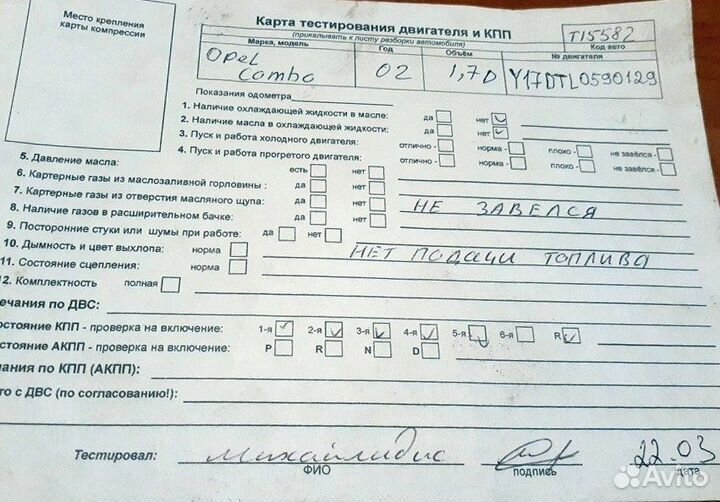 Место крепления
карты компрессии
Карта тестирования двигателя и КПП
(прикалывать к листу разборки автомобиля)
Т15582
Код авто
Марка, модель
Год
Объём
№ двигателя
Opel
Combo
02
1,7D
Y17DTL0590129
Показания одометра
1. Наличие охлаждающей жидкости в масле: да нет
2. Наличие масла в охлаждающей жидкости: да нет
3. Пуск и работа холодного двигателя: отлично - норма - плохо - не завёлся -
4. Пуск и работа прогретого двигателя: отлично - норма - плохо - не завёлся -
5. Давление масла: есть нет
6. Картерные газы из маслозаливной горловины : да нет
7. Картерные газы из отверстия масляного щупа: да нет
8. Наличие газов в расширительном бачке: да нет
НЕ ЗАВЕЛСЯ
9. Посторонние стуки или шумы при работе: да нет
10. Дымность и цвет выхлопа: норма
НЕТ ПОДАЧИ ТОПЛИВА
11. Состояние сцепления: норма
12. Комплектность полная
ечания по ДВС:
остояние КПП - проверка на включение: 1-я 2-я 3-я 4-я 5-я 6-я R
стояние АКПП - проверка на включение: P R N D
ания по КПП (АКПП):
то с ДВС (по согласованию!):
Тестировал: Михайлидис
ФИО
подпись
22.03
дата
Avito